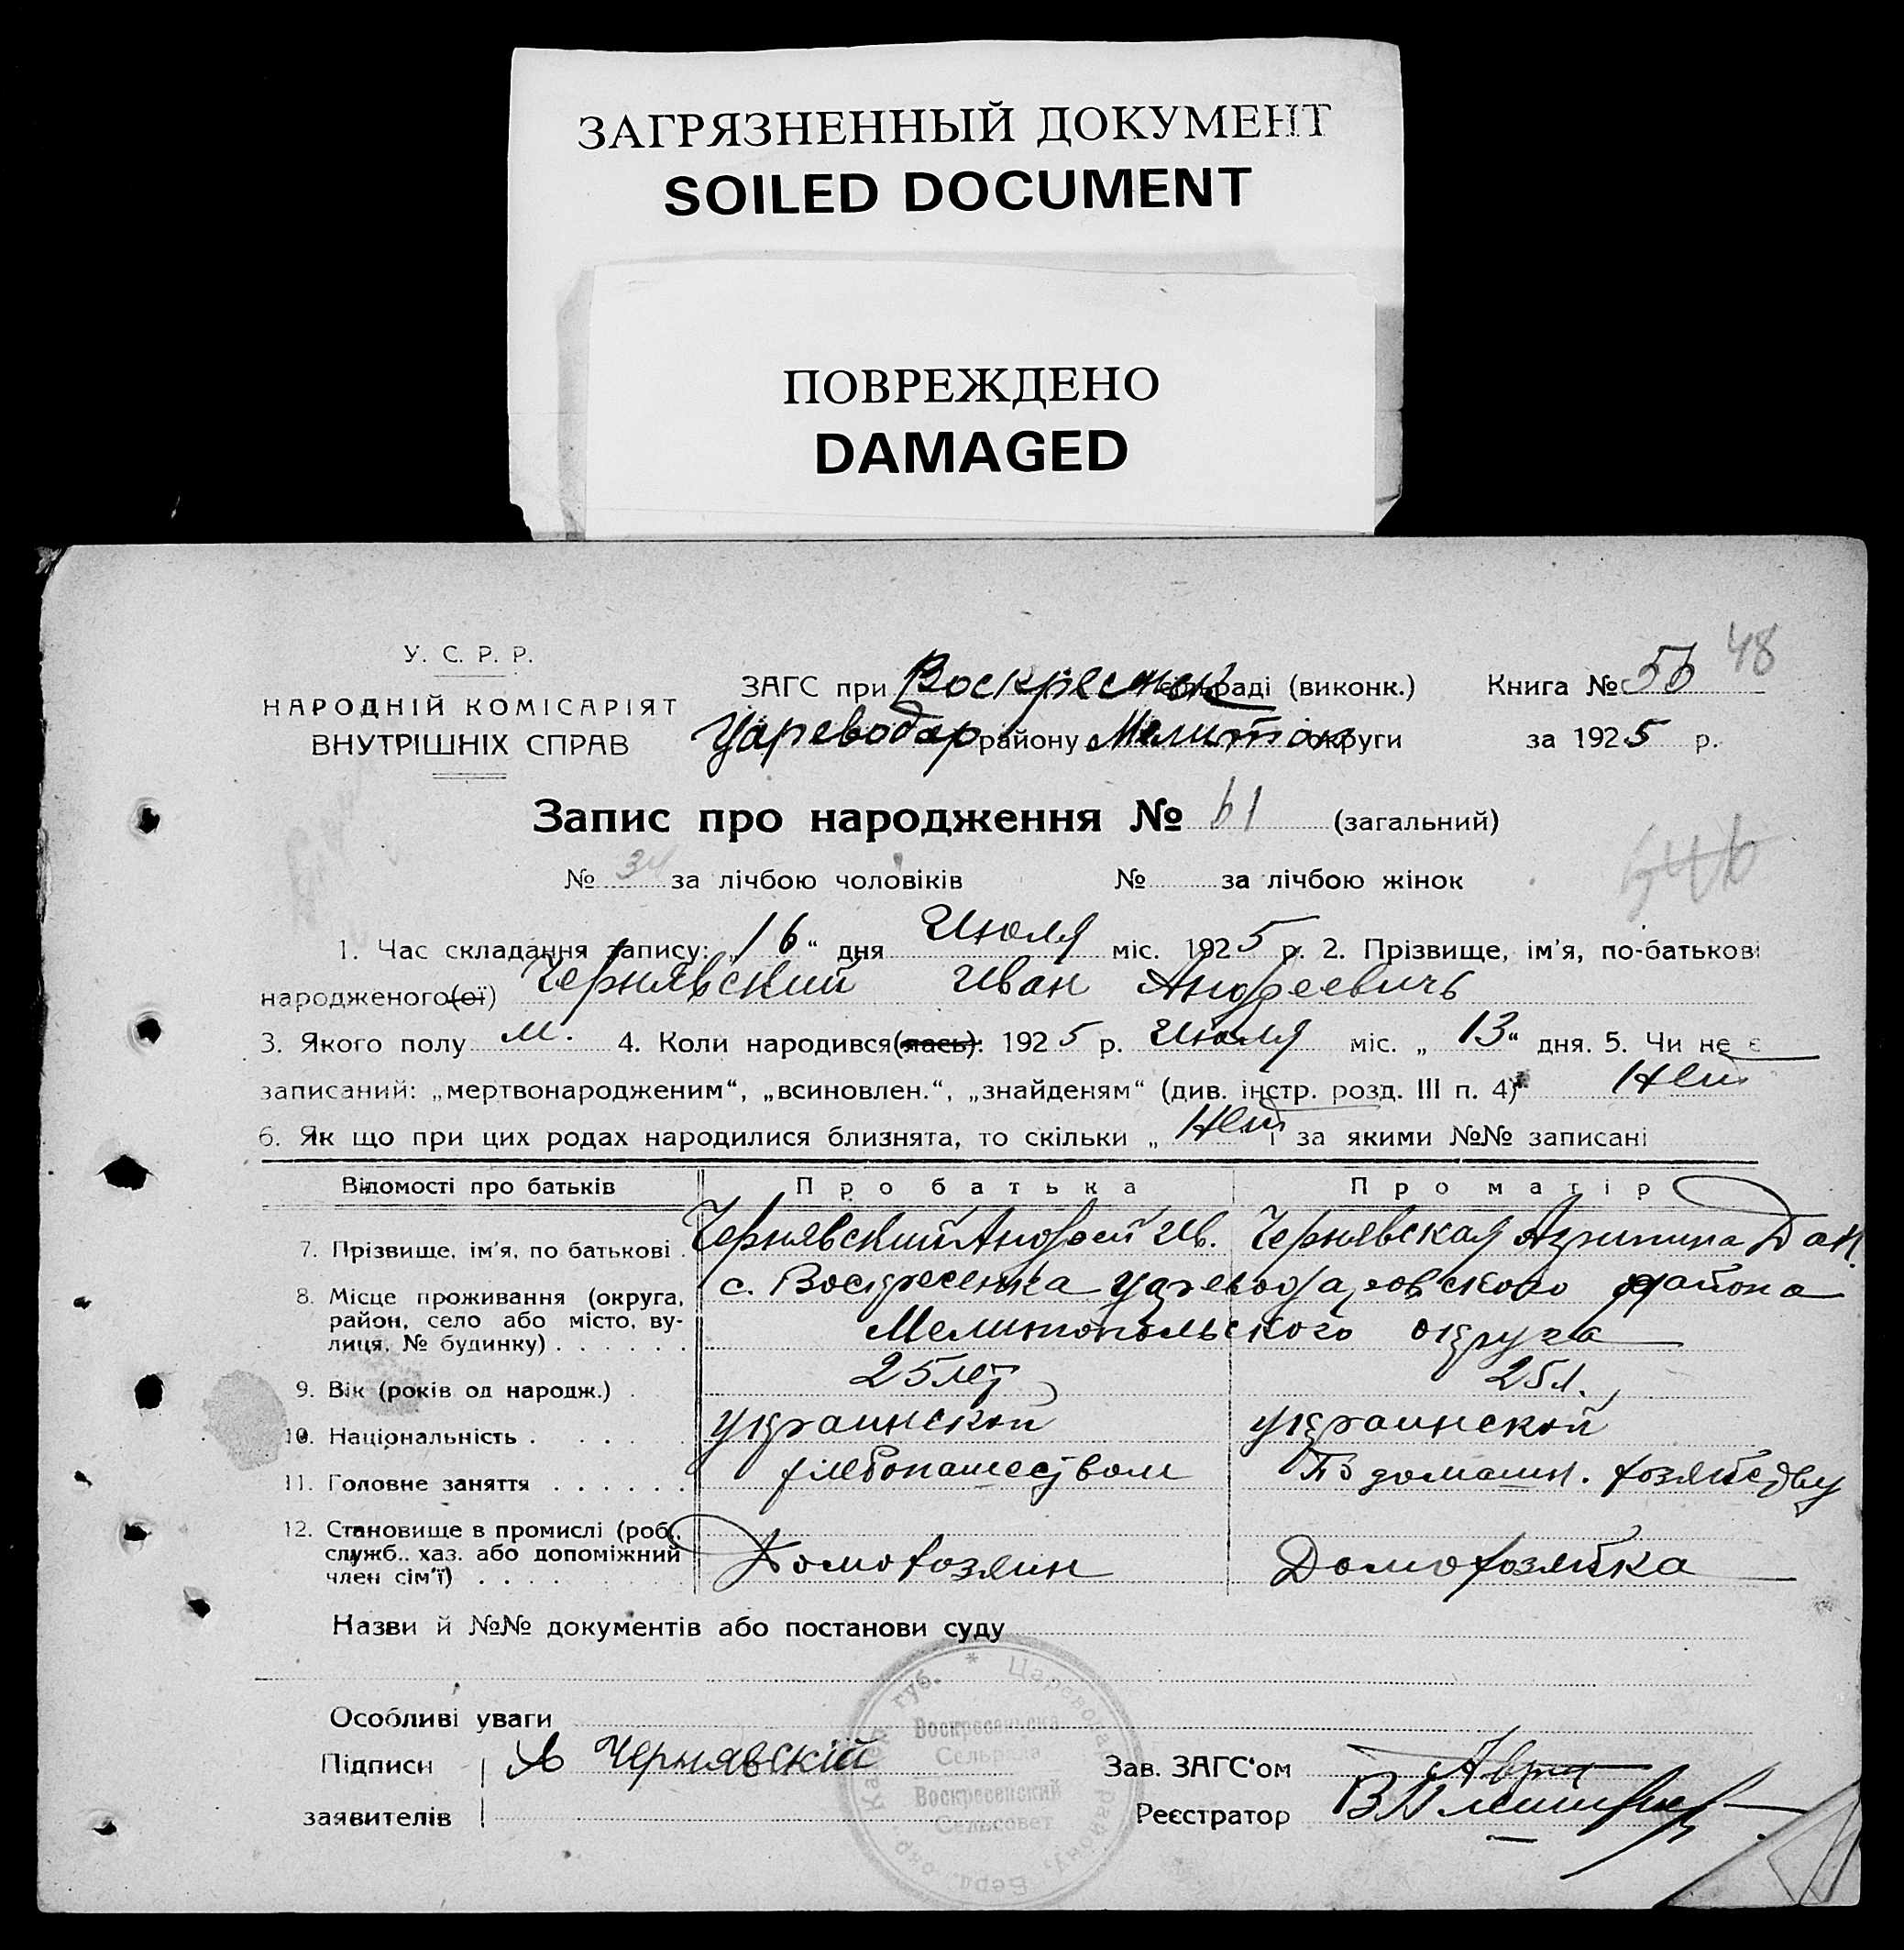 ЗАГРЯЗНЕННЫЙ ДОКУМЕНТ
SOILED DOCUMENT
ПОВРЕЖДЕНО
DAMAGED
У. С. Р. Р.
НАРОДНІЙ КОМІСАРІЯТ
ВНУТРІШНІХ СПРАВ
ЗАГС при Воскресенск сельраді (виконк.) Книга № 56 48
Цареводар району Мелитоп округи за 1925 р.
Запис про народження № 61 (загальний)
№ 34 за лічбою чоловіків № за лічбою жінок
546
1. Час складання запису: „16“ дня Июля міс. 1925 р. 2. Прізвище, ім'я, по-батькові
народженого(ої) Чернявский Иван Андреевичь
3. Якого полу м. 4. Коли народився(лась): 1925 р. Июля міс. „13“ дня. 5. Чи не є
записаний: „мертвонародженим“, „всиновлен.“, „знайденям“ (див. інстр. розд. III п. 4) Нет
6. Як що при цих родах народилися близнята, то скільки „Нет і за якими №№ записані
Відомості про батьків Про батька Про матір
7. Прізвище, ім'я, по батькові . Чернявский Андрей Ив. Чернявская Агрипина Дан.
8. Місце проживання (округа, район, село або місто, вулиця, № будинку) . . . . . . с. Воскресенка Цареводаровского района
Мелитопольского округа
9. Вік (років од народж.) . 25 лет 25 л.
10. Національність . . . . . украинской украинской
11. Головне заняття . . . . . . хлебопашеством По домашн. хозяйству
12. Становище в промислі (роб., служб.. хаз. або допоміжний член сім'ї) . . . . Домохозяин Домохозяйка
Назви й №№ документів або постанови суду
Особливі уваги
Підписи Чернявскій Зав. ЗАГС'ом
заявителів Реєстратор
губ. * Цареводар району, Берд. окр
Воскресенська
Сельрада
Воскресенский
Сельсовет